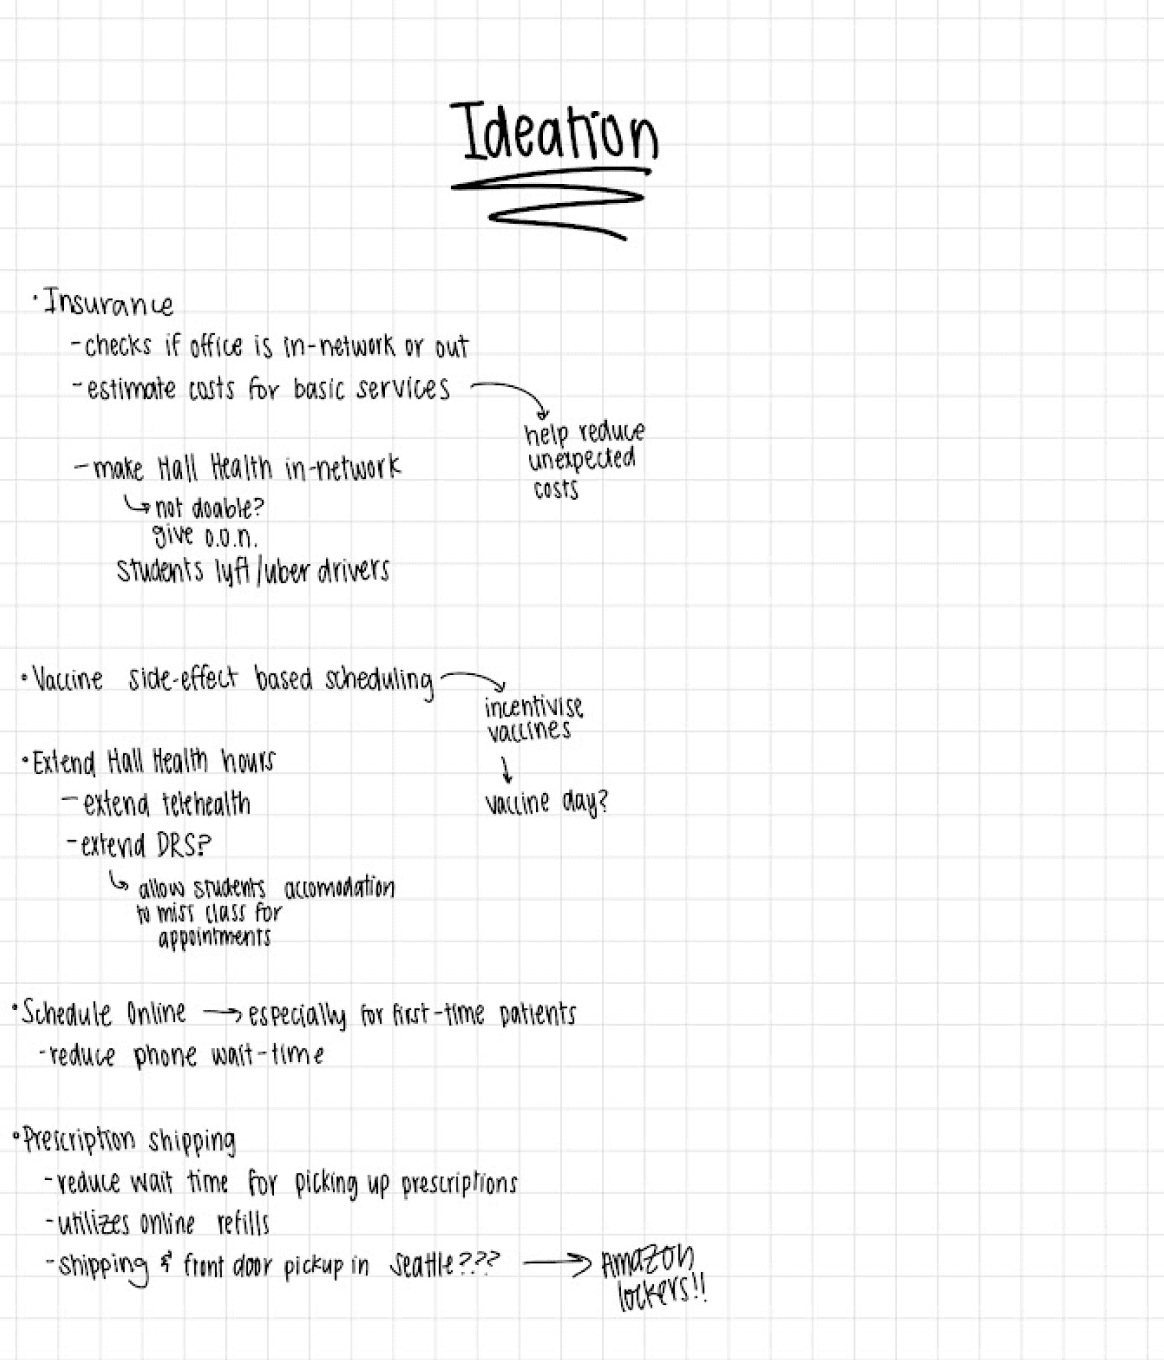 Ideation
• Insurance
- checks if office is in-network or out
- estimate costs for basic services
help reduce
unexpected
costs
- make Hall Health in-network
↳ not doable?
give o.o.n.
students lyft/uber drivers
• Vaccine side-effect based scheduling
incentivise
vaccines
↓
vaccine day?
• Extend Hall Health hours
- extend telehealth
- extend DRS?
↳ allow students accomodation
to miss class for
appointments
• Schedule Online → especially for first-time patients
- reduce phone wait-time
• Prescription shipping
- reduce wait time for picking up prescriptions
- utilizes online refills
- shipping & front door pickup in Seattle??? → Amazon
lockers!!